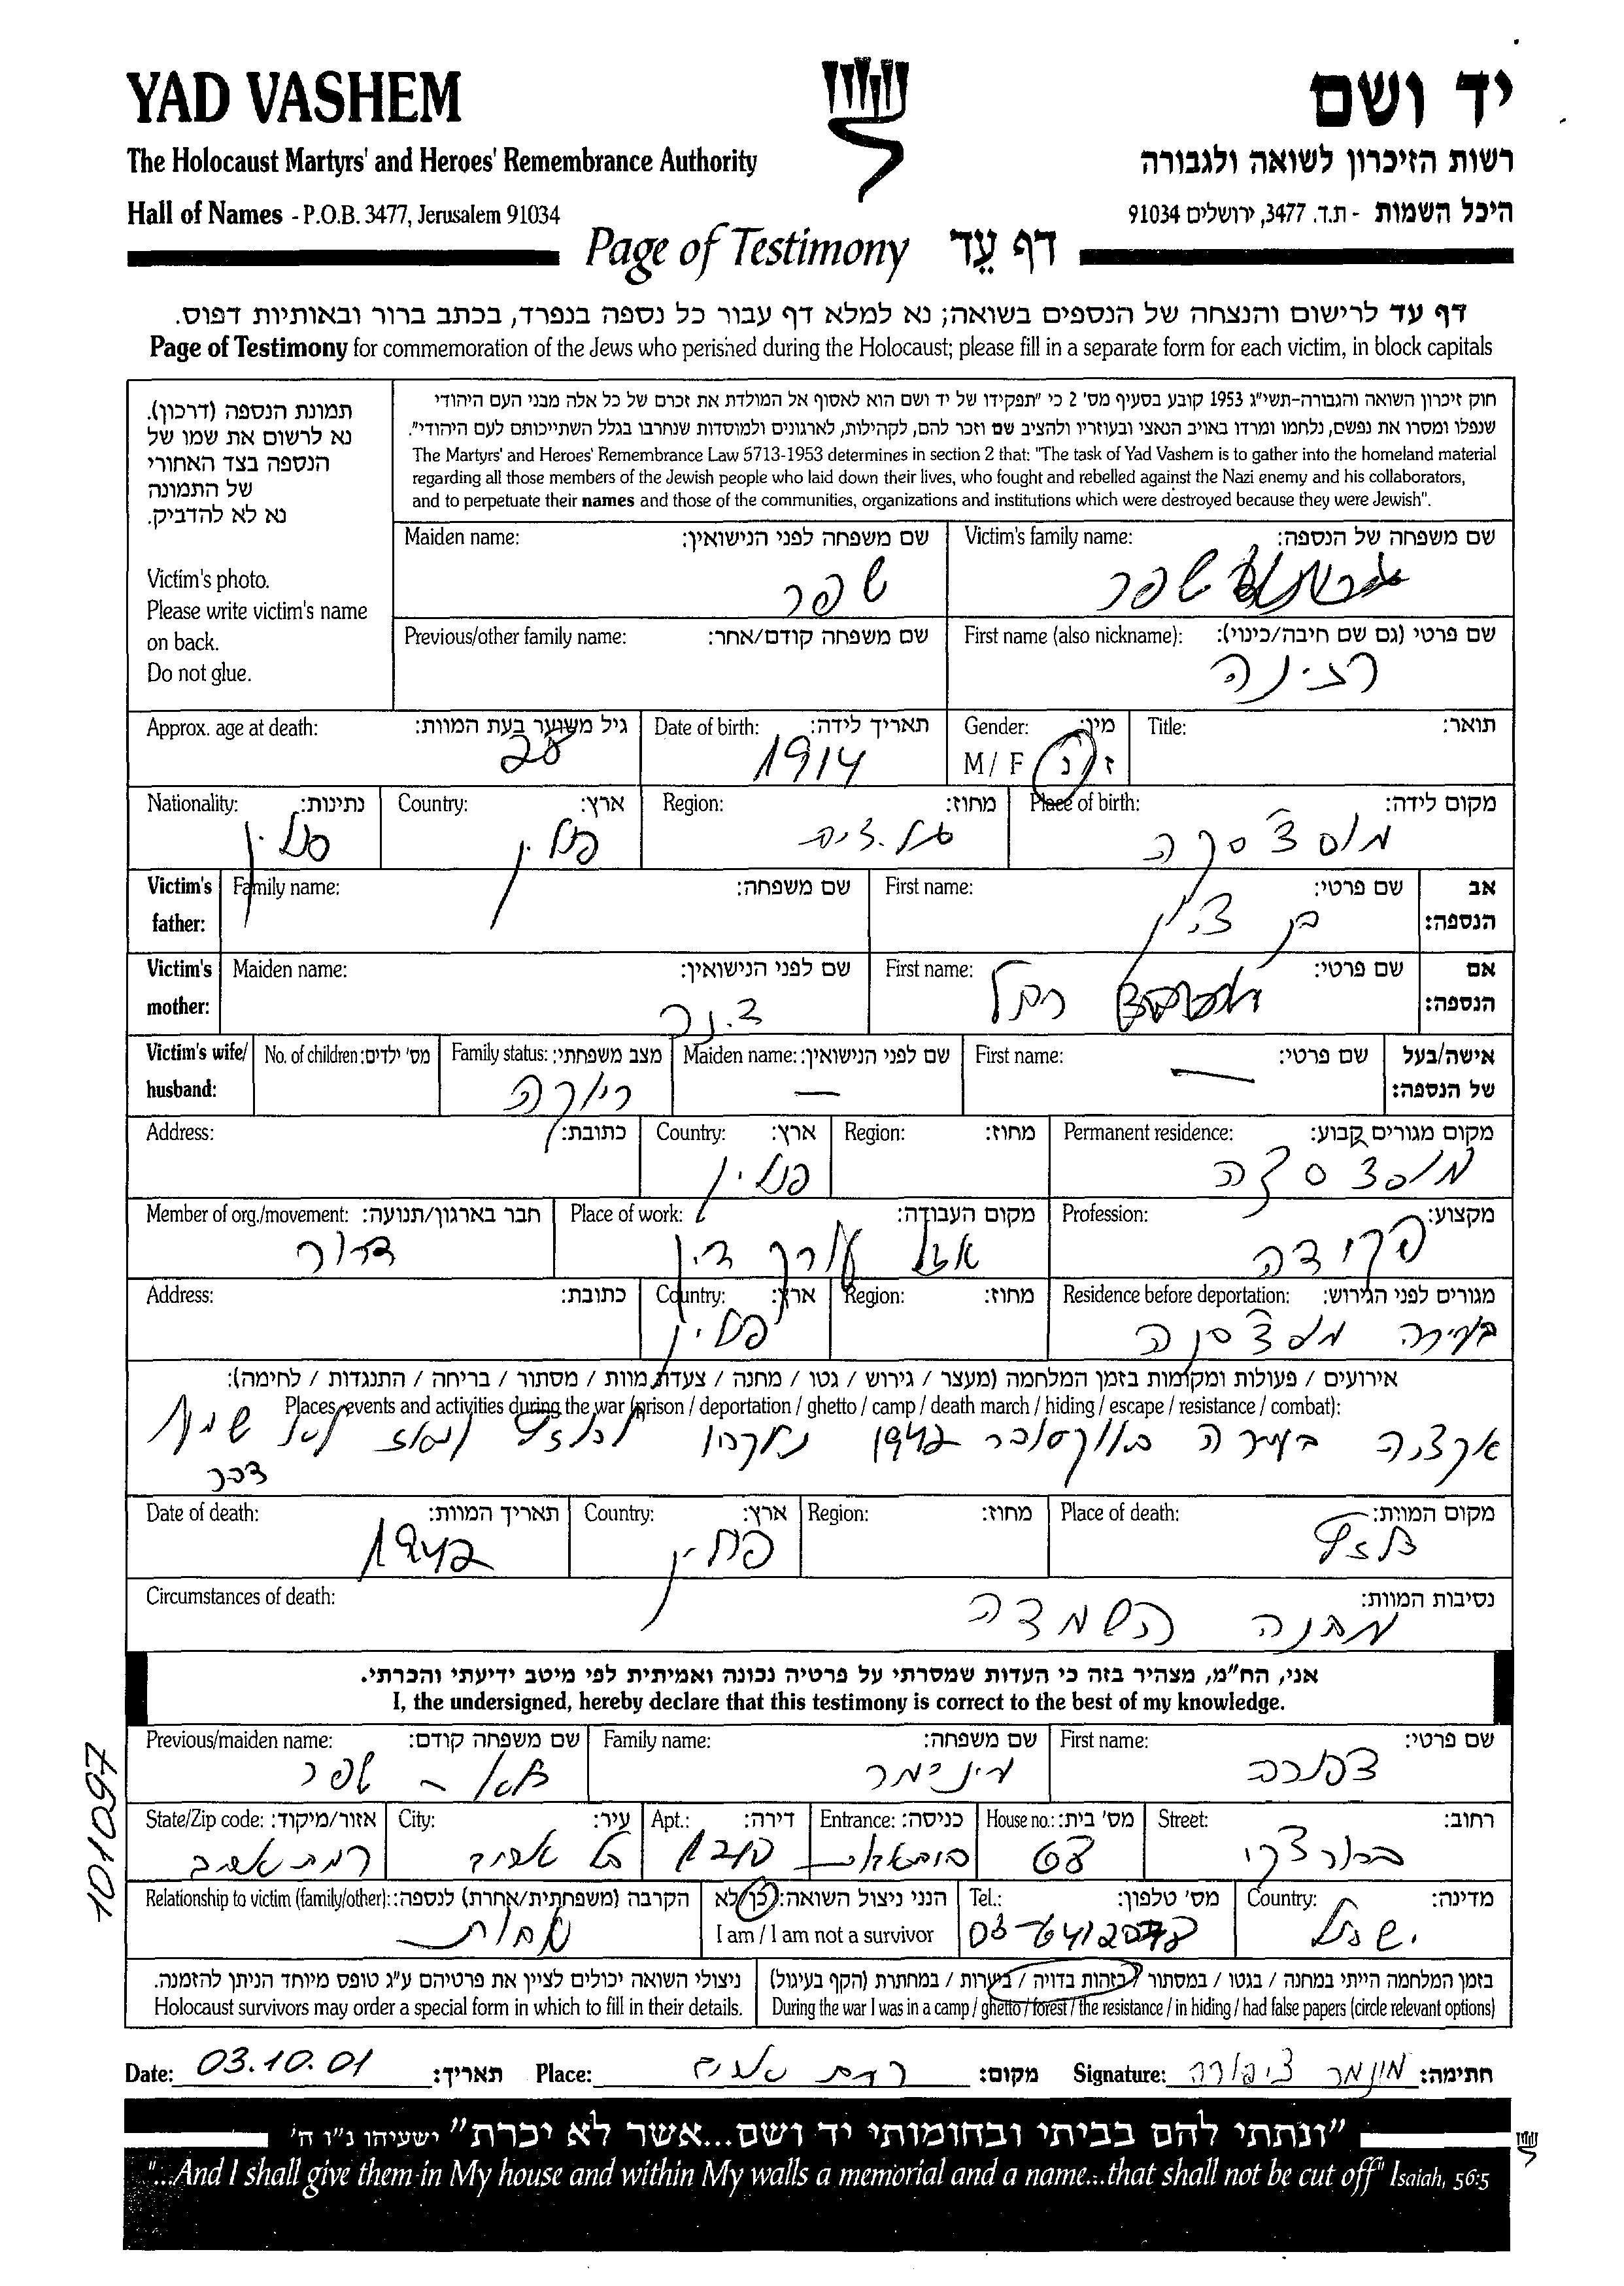 YAD VASHEM
יד ושם
The Holocaust Martyrs' and Heroes' Remembrance Authority
רשות הזיכרון לשואה ולגבורה
Hall of Names - P.O.B. 3477, Jerusalem 91034
היכל השמות - ת.ד. 3477, ירושלים 91034
Page of Testimony דף עד
דף עד לרישום והנצחה של הנספים בשואה; נא למלא דף עבור כל נספה בנפרד, בכתב ברור ובאותיות דפוס.
Page of Testimony for commemoration of the Jews who perished during the Holocaust; please fill in a separate form for each victim, in block capitals
תמונת הנספה (דרכון).
נא לרשום את שמו של
הנספה בצד האחורי
של התמונה
נא לא להדביק.
Victim's photo.
Please write victim's name
on back.
Do not glue.
חוק זיכרון השואה והגבורה-תשי"ג 1953 קובע בסעיף מס' 2 כי "תפקידו של יד ושם הוא לאסוף אל המולדת את זכרם של כל אלה מבני העם היהודי
שנפלו ומסרו את נפשם, נלחמו ומרדו באויב הנאצי ובעוזריו ולהציב שם וזכר להם, לקהילות, לארגונים ולמוסדות שנחרבו בגלל השתייכותם לעם היהודי".
The Martyrs' and Heroes' Remembrance Law 5713-1953 determines in section 2 that: "The task of Yad Vashem is to gather into the homeland material
regarding all those members of the Jewish people who laid down their lives, who fought and rebelled against the Nazi enemy and his collaborators,
and to perpetuate their names and those of the communities, organizations and institutions which were destroyed because they were Jewish".
Victim's family name: שם משפחה של הנספה:
שפר
Maiden name: שם משפחה לפני הנישואין:
שפר
First name (also nickname): שם פרטי (גם שם חיבה/כינוי):
רגינה
Previous/other family name: שם משפחה קודם/אחר:
Title: תואר:
Gender: מין:
M / F ז / נ
Date of birth: תאריך לידה:
1914
Approx. age at death: גיל משוער בעת המוות:
28
Place of birth: מקום לידה:
מוסצ'סקה
Region: מחוז:
גליציה
Country: ארץ:
פולין
Nationality: נתינות:
פולין
Victim's father: אב הנספה:
First name: שם פרטי:
בן ציון
Family name: שם משפחה:
Victim's mother: אם הנספה:
First name: שם פרטי:
רחל
Maiden name: שם לפני הנישואין:
צ.נר
Victim's wife/ husband: אישה/בעל של הנספה:
First name: שם פרטי:
—
Maiden name: שם לפני הנישואין:
—
Family status: מצב משפחתי:
רווקה
No. of children: מס' ילדים:
Permanent residence: מקום מגורים קבוע:
Region: מחוז:
Country: ארץ:
פולין
Address: כתובת:
Profession: מקצוע:
פקידה
Place of work: מקום העבודה:
אצל עורך דין
Member of org./movement: חבר בארגון/תנועה:
דרור
Residence before deportation: מגורים לפני הגירוש:
בעירה מוסצ'סקה
Region: מחוז:
Country: ארץ:
פולין
Address: כתובת:
אירועים / פעולות ומקומות בזמן המלחמה (מעצר / גירוש / גטו / מחנה / צעדת מוות / מסתור / בריחה / התנגדות / לחימה):
Places, events and activities during the war (prison / deportation / ghetto / camp / death march / hiding / escape / resistance / combat):
אקציה בעירה באוקטובר 1942 נלקחו לבלזץ ומאז לא שמענו
דבר
Place of death: מקום המוות:
בלזץ
Region: מחוז:
Country: ארץ:
פולין
Date of death: תאריך המוות:
1942
Circumstances of death: נסיבות המוות:
מחנה השמדה
אני, הח"מ, מצהיר בזה כי העדות שמסרתי על פרטיה נכונה ואמיתית לפי מיטב ידיעתי והכרתי.
I, the undersigned, hereby declare that this testimony is correct to the best of my knowledge.
First name: שם פרטי:
צפורה
Family name: שם משפחה:
מינצמר
Previous/maiden name: שם משפחה קודם:
שפר
Street: רחוב:
House no.: מס' בית:
Entrance: כניסה:
Apt.: דירה:
City: עיר:
תל אביב
State/Zip code: אזור/מיקוד:
רמת אביב
Country: מדינה:
ישראל
Tel.: מס' טלפון:
הנני ניצול השואה: כן/לא
I am / I am not a survivor
Relationship to victim (family/other): הקרבה (משפחתית/אחרת) לנספה:
אחות
בזמן המלחמה הייתי במחנה / בגטו / במסתור / בזהות בדויה / ביערות / במחתרת (הקף בעיגול)
During the war I was in a camp / ghetto / forest / the resistance / in hiding / had false papers (circle relevant options)
ניצולי השואה יכולים לציין את פרטיהם ע"ג טופס מיוחד הניתן להזמנה.
Holocaust survivors may order a special form in which to fill in their details.
Date: 03.10.01 תאריך: Place: רמת אביב מקום: Signature: ציפורה חתימה:
"ונתתי להם בביתי ובחומותי יד ושם...אשר לא יכרת" ישעיהו נ"ו ה'
"...And I shall give them in My house and within My walls a memorial and a name...that shall not be cut off" Isaiah, 56:5
101097